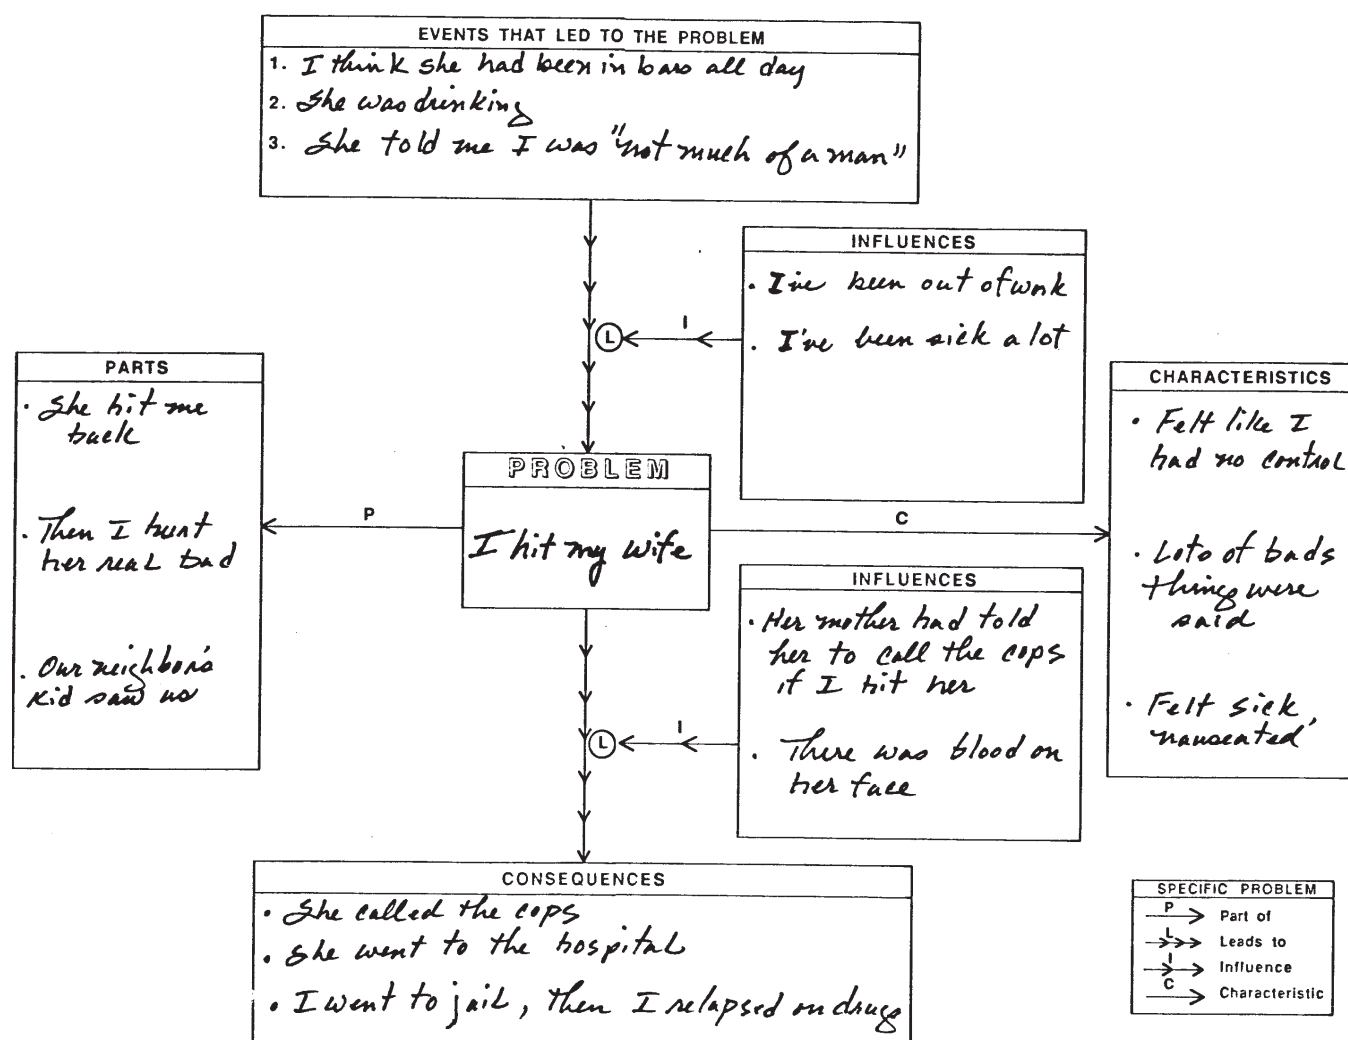 EVENTS THAT LED TO THE PROBLEM
1. I think she had been in bars all day
2. She was drinking
3. She told me I was "not much of a man"
INFLUENCES
· I've been out of work
· I've been sick a lot
L
I
PARTS
· She hit me
back
· Then I hurt
her real bad
· Our neighbor's
kid saw us
P
PROBLEM
I hit my wife
C
CHARACTERISTICS
· Felt like I
had no control
· Lots of bads
things were
said
· Felt sick,
nauseated
INFLUENCES
· Her mother had told
her to call the cops
if I hit her
· There was blood on
her face
L
I
CONSEQUENCES
· She called the cops
· She went to the hospital
· I went to jail, then I relapsed on drugs
SPECIFIC PROBLEM
P Part of
L Leads to
I Influence
C Characteristic